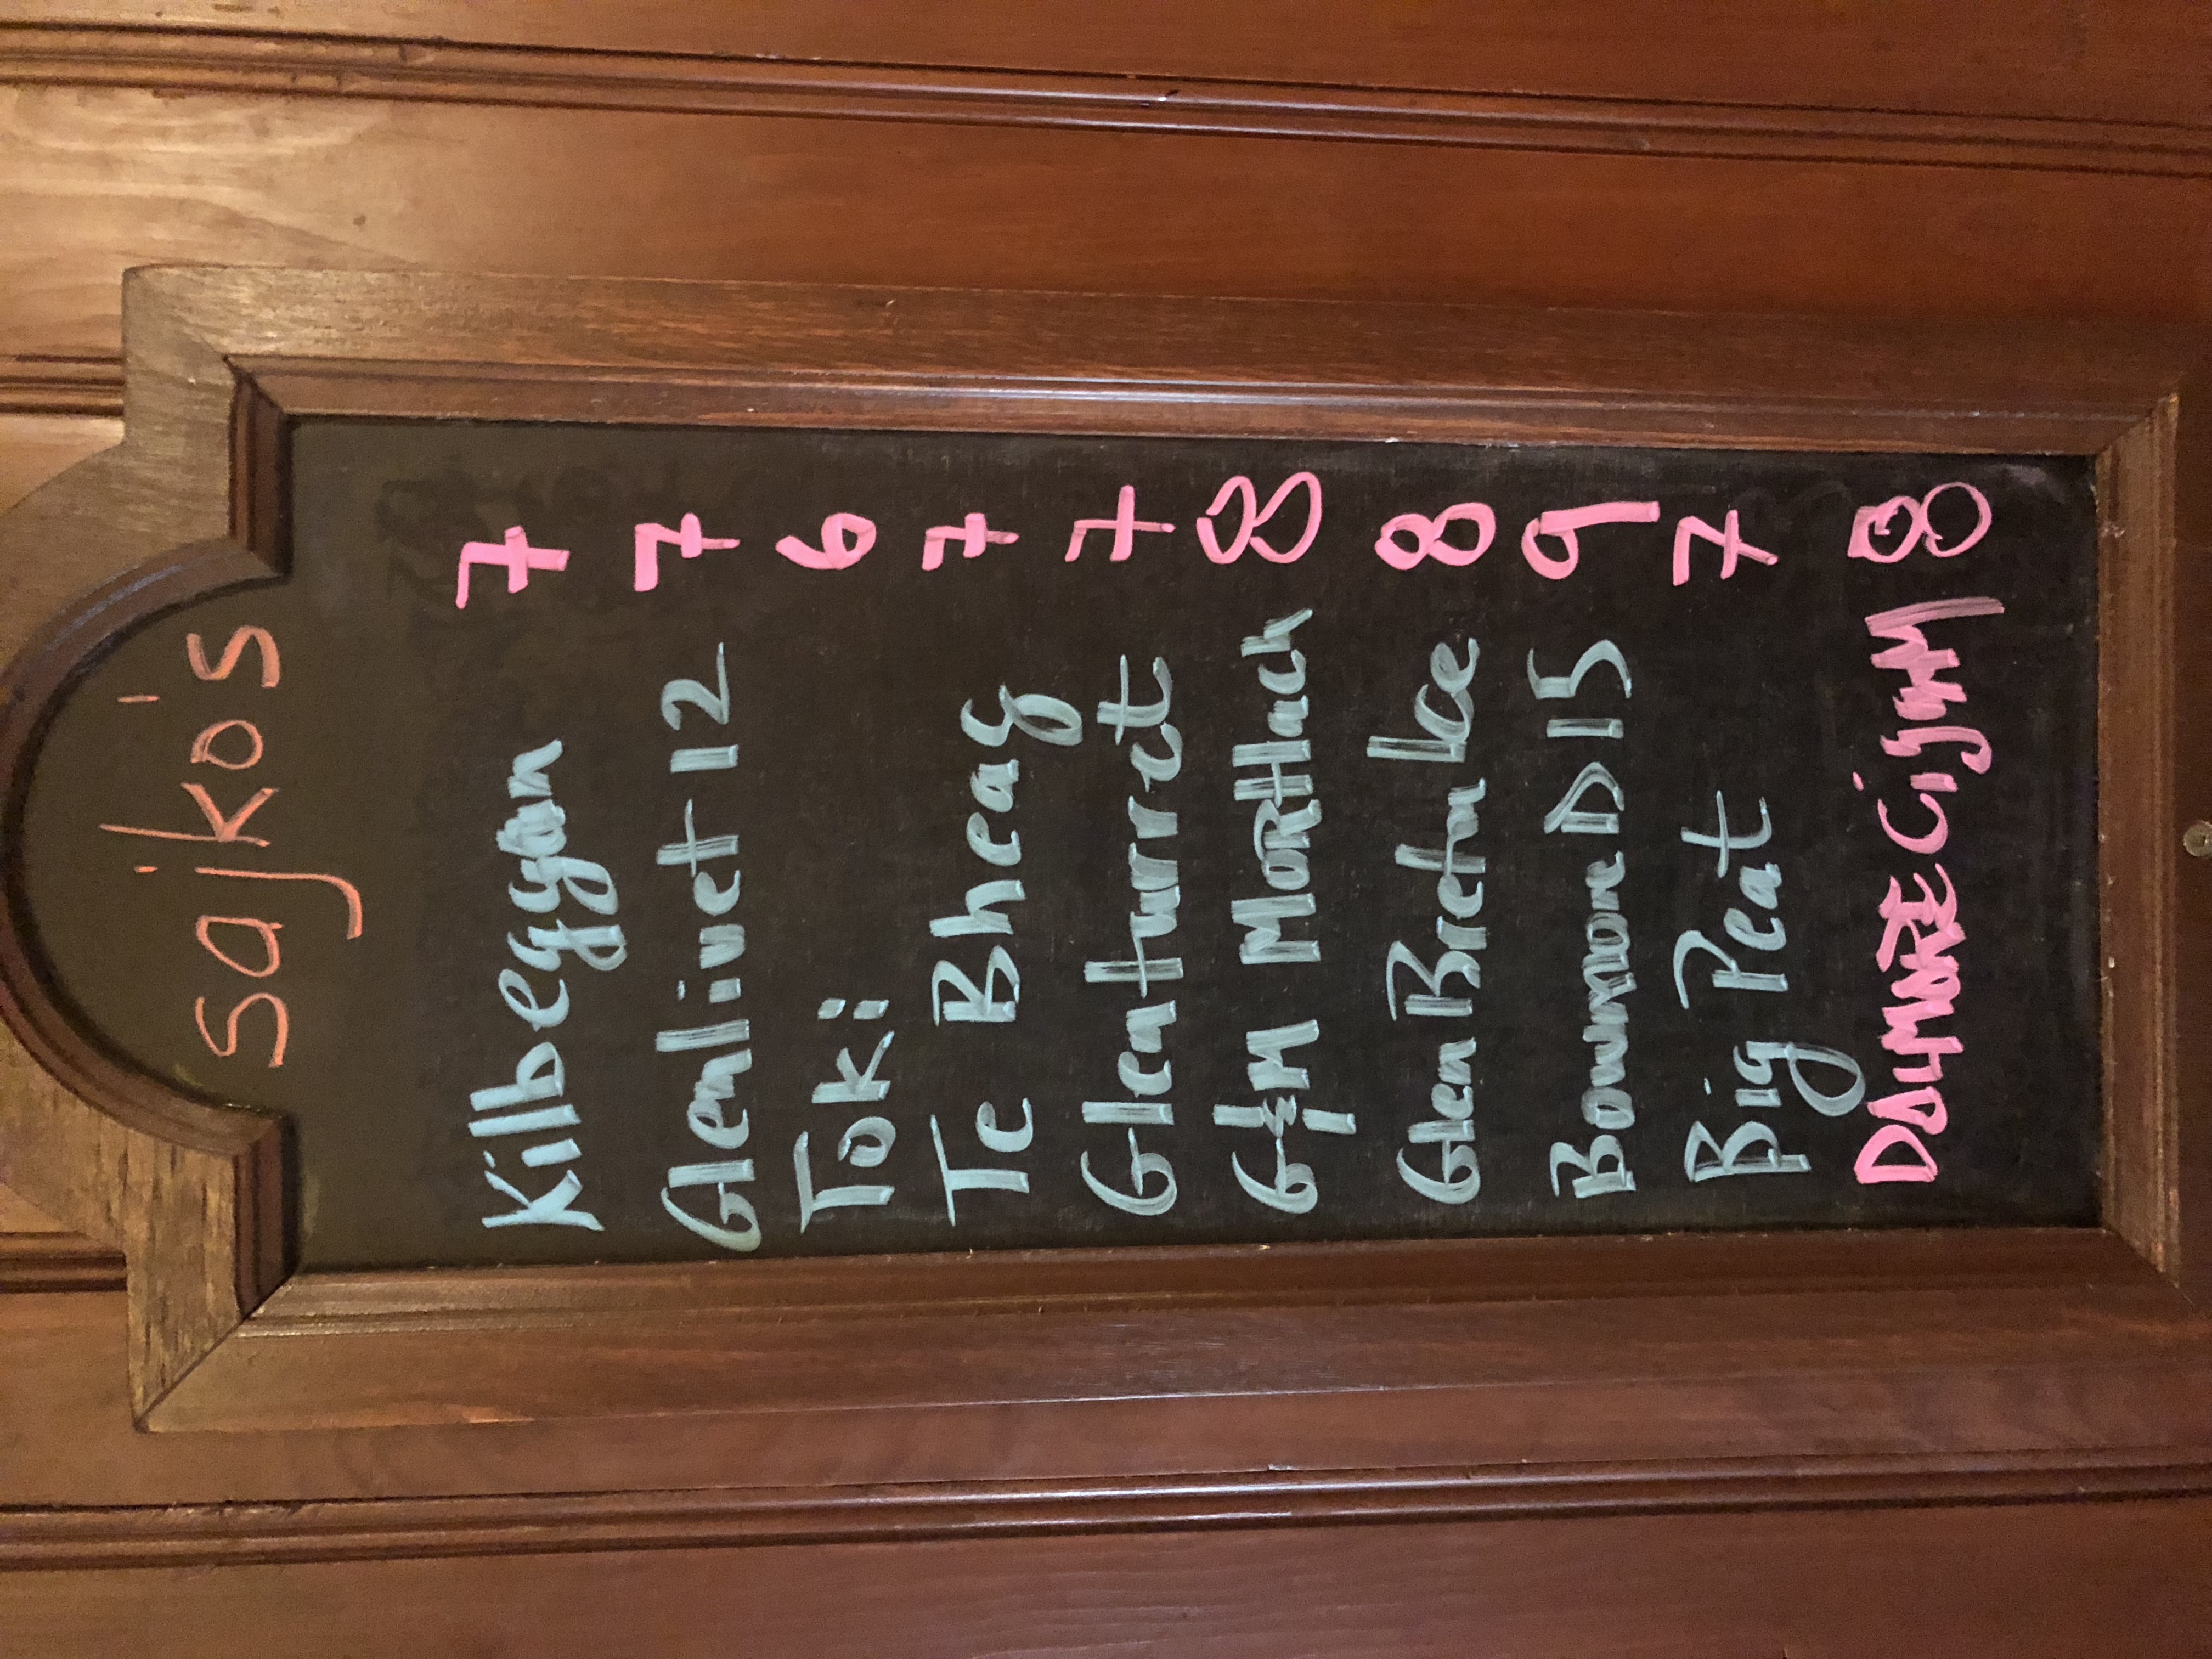 sajko's
Kilbeggan 7
Glenlivet 12 7
Toki 6
Te Bheag 7
Glenturret 7
G&M Mortlach 8
Glen Breton Ice 8
Bowmore D15 9
Big Peat 7
DALMORE Cigar 8